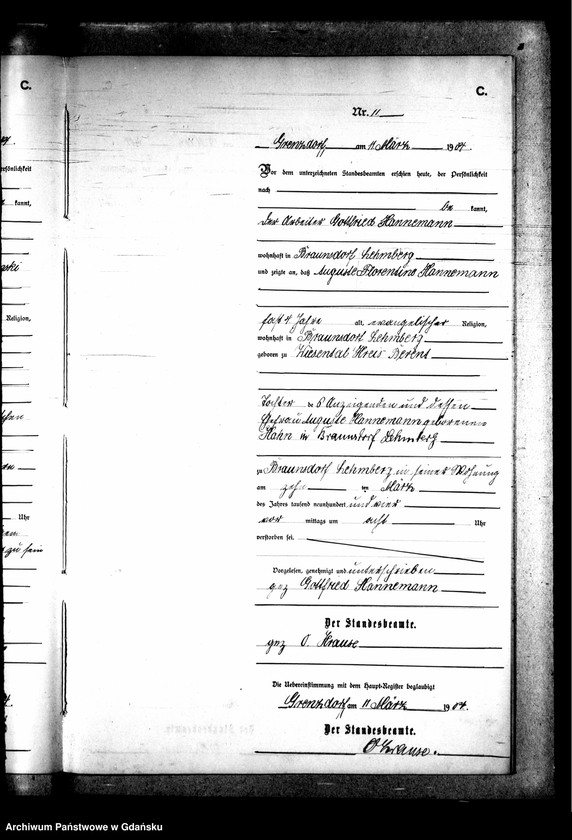 C.
C.
Nr. 11
Grenzdorf, am 11 März 1904.
Vor dem unterzeichneten Standesbeamten erschien heute, der Persönlichkeit
nach
be kannt,
der Arbeiter Gottfried Hannemann
wohnhaft in Braunsdorf Lehmberg
und zeigte an, daß Auguste Florentine Hannemann
fast 4 Jahre alt, evangelischer Religion,
wohnhaft in Braunsdorf Lehmberg
geboren zu Wiesental Kreis Berent
Tochter des Anzeigenden und dessen
Ehefrau Auguste Hannemann geborenen
Hahn in Braunsdorf Lehmberg
zu Braunsdorf Lehmberg in seiner Wohnung
am zehn ten März
des Jahres tausend neunhundert und vier
vor mittags um acht Uhr
verstorben sei.
Vorgelesen, genehmigt und unterschrieben
gez Gottfried Hannemann
Der Standesbeamte.
gez O. Krause
Die Uebereinstimmung mit dem Haupt-Register beglaubigt
Grenzdorf am 11 März 1904.
Der Standesbeamte.
O Krause.
kannt,
Religion,
Uhr
zu sein
Archiwum Państwowe w Gdańsku